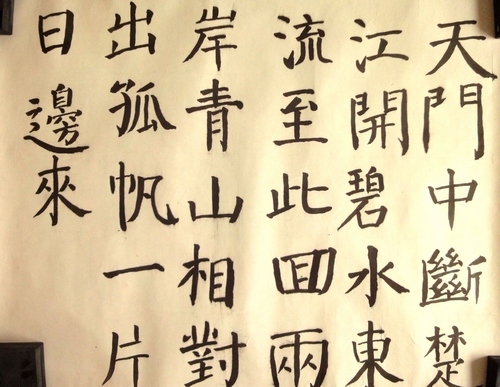 天門中斷楚
江開碧水東
流至此回兩
岸青山相對
出孤帆一片
日邊來